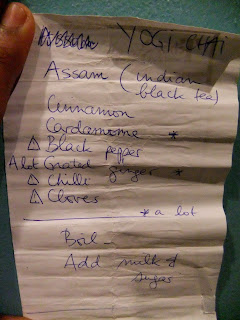 YOGI CHAI
Assam (indian
black tea)
Cinnamon
Cardamome *
△ Black pepper
A lot Grated ginger *
△ Chilli
△ Cloves
* a lot
Boil -
Add milk &
sugar